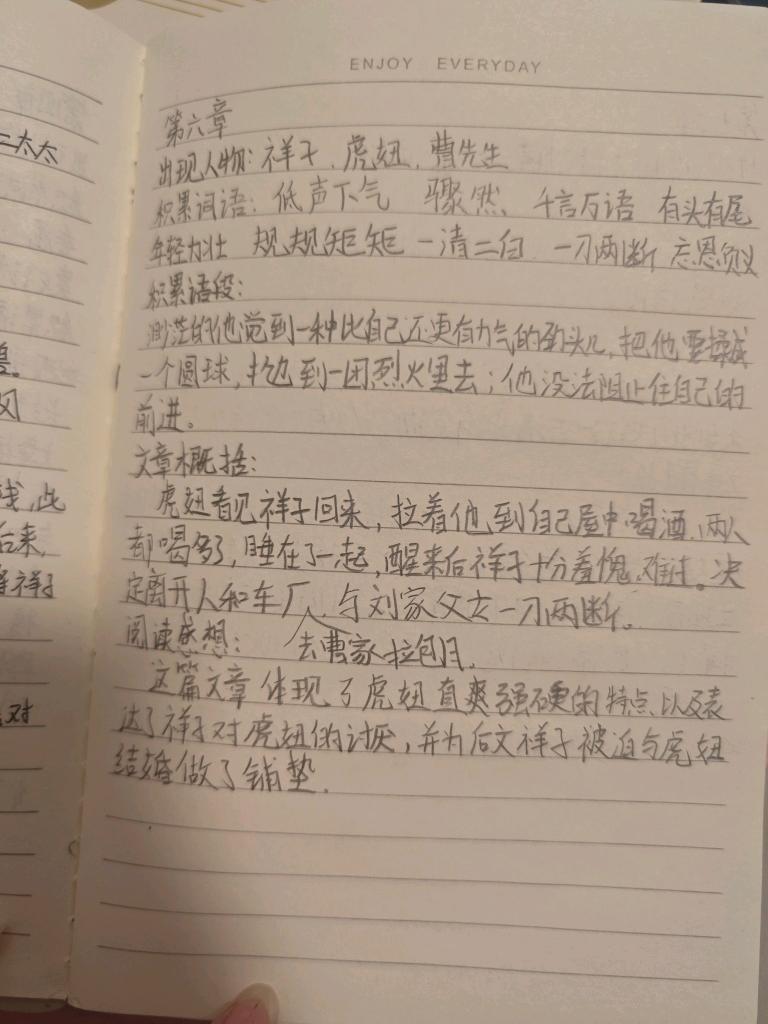 二太太
兽。
风
钱,此
后来,
祥子
对
ENJOY EVERYDAY
第六章
出现人物:祥子、虎妞、曹先生
积累词语:低声下气 骤然、千言万语 有头有尾
年轻力壮 规规矩矩 一清二白 一刀两断 忘恩负义
积累语段:
渺茫的他觉到一种比自己还更有力气的劲头儿,把他要揉成
一个圆球,抛到一团烈火里去;他没法阻止住自己的
前进。
文章概括:
虎妞看见祥子回来,拉着他到自己屋中喝酒,两人
都喝多了,睡在了一起,醒来后祥子十分羞愧、难过。决
定离开人和车厂,与刘家父女一刀两断。
去曹家拉包月,
阅读感想:
这篇文章体现了虎妞直爽强硬的特点以及表
达了祥子对虎妞的讨厌,并为后文祥子被迫与虎妞
结婚做了铺垫.